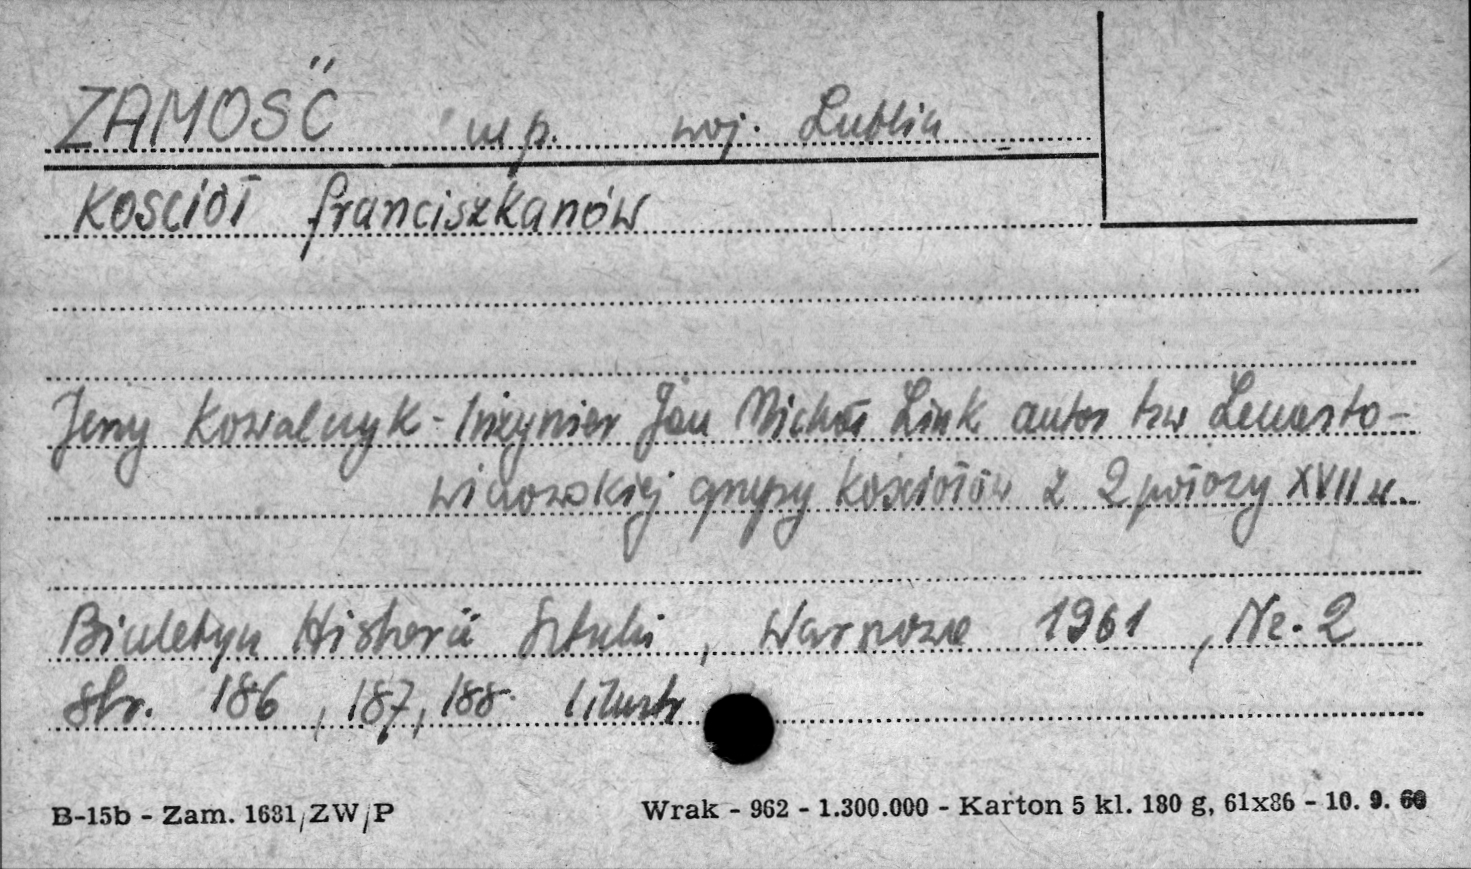 ZAMOŚĆ m p. woj. Lublin
Kościół franciszkanów
Jerzy Kowalczyk - Inżynier Jan Michał Link autor tzw Lewarto-
wiczowskiej grupy kościołów z 2 połowy XVII w.
Biuletyn Historii Sztuki, Warszawa 1961, Nr. 2
str. 186, 187, 188. Ilustr
B-15b - Zam. 1631/ZW/P Wrak - 962 - 1.300.000 - Karton 5 kl. 180 g, 61x86 - 10. 9. 60